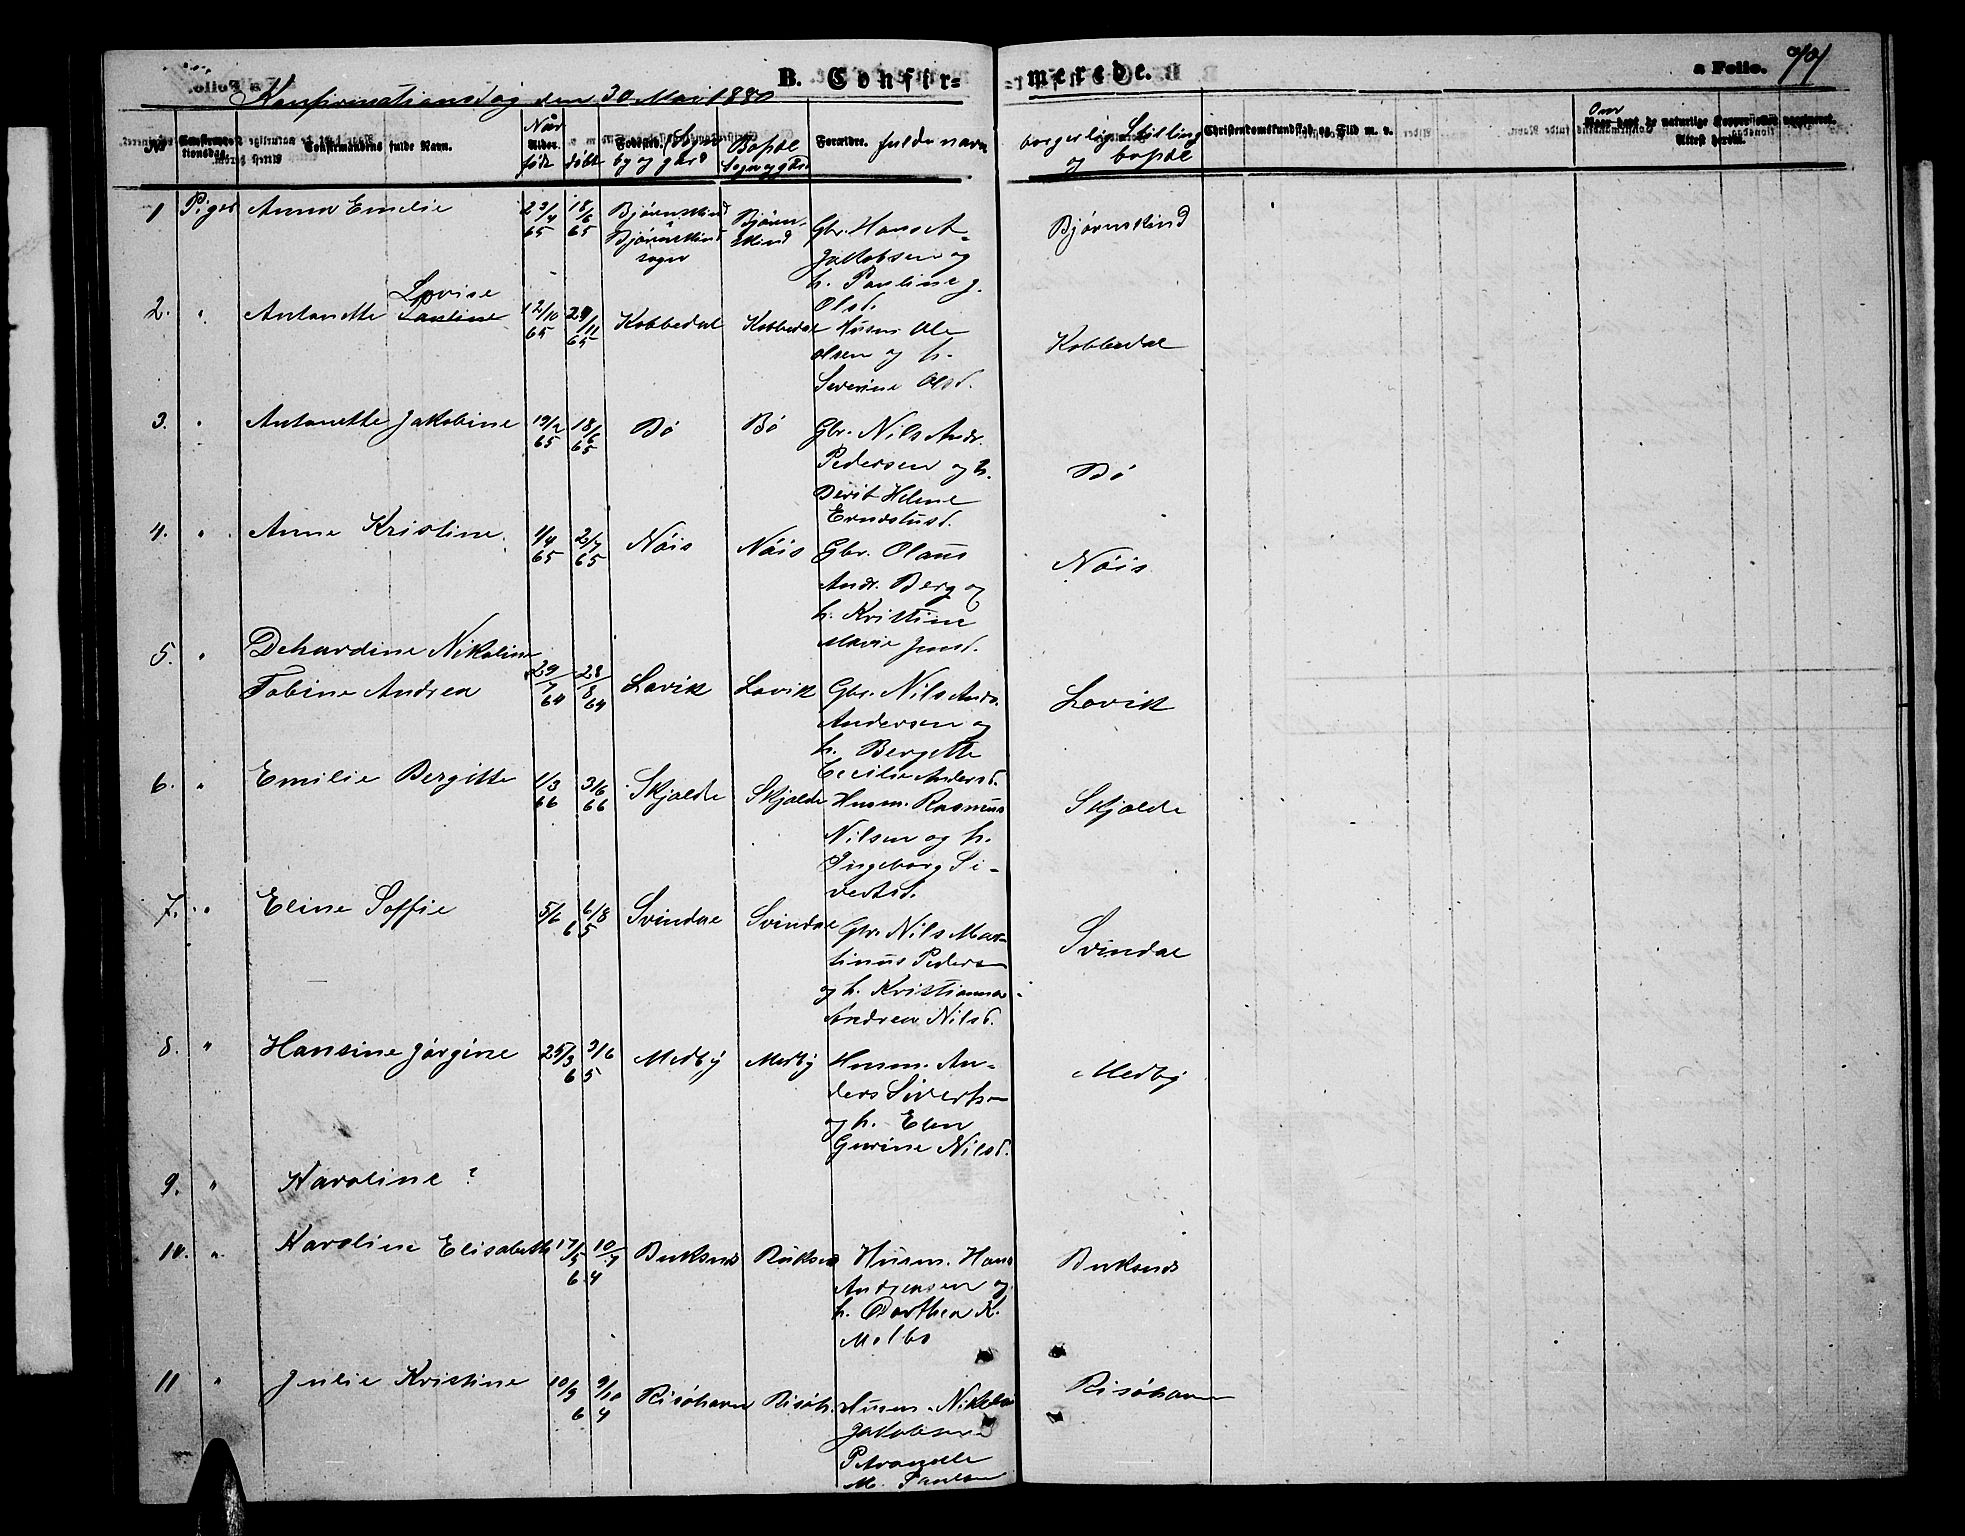 B. Confir=
merede.
a Folio. 77
Konfirmationsdag den 30 Mai 1880
No Confirma-tionsdag. Confirmandens fulde Navn. Når Alder. født døbt Fødested. by og gård Bopæl Sogn og gård Forældre. fulde navn borgerlig Stilling og bopæl Christendomskundskab og Flid m. v.
1 Piger Anna Emelie 23/4 65 18/6 65 Bjørnskind Bjørnskind sogn Bjørn-skind Gbr. Hans A-
Jakobsen og
h. Pauline J.
Olsd. Bjørnskind
2. " Antonette Lovise
Pauline 12/10 65 29/11 65 Kobbedal Kobbedal Husm. Ole
Olsen og h.
Severine Olsd. Kobbedal
3. " Antonette Jakobine 19/2 65 18/6 65 Bø Bø Gbr. Nils Andr.
Pedersen og h.
Berit Helene
Erndstusd. Bø
4. " Anne Kristine 1/4 65 2/7 65 Nöis Nöis Gbr. Olaus
Andr. Berg og
h. Kristine
Marie Jensd. Nöis
5. " Dehardine Nikoline
Tobine Andrea 29/7 64 28/8 64 Lovik Lovik Gbr. Nils Andr.
Andersen og
h. Bergette
Cecilie Andersd. Lovik
6. " Emilie Bergitte 1/3 66 3/6 66 Skjolde Skjolde Husm. Rasmus
Nilsen og h.
Ingeborg Si-
vertsd. Skjolde
7. " Eline Soffie 5/6 6/8 65 Svindal Svindal Gbr. Nils Mar-
tinus Peders-
og h. Kristianna
Andrea Nilsd. Svindal
8. " Hansine Jørgine 25/3 3/6 65 Medby Medby Husm. An-
ders Siverts-
og h. Elen
Gurine Nilsd. Medby
9. " Karoline ?
10. " Karoline Elisabeth 17/5 10/7 64 Buksnes Buksnes Husm. Hans
Andreasen og
h. Dorthea K.
Molbo Buksnes
11 " Julie Kristine 10/9 9/10 64 Risøhavn Risøh. Husm. Nikolai
Jakobsen
Petronelle
M. Paulsen Risøhavn